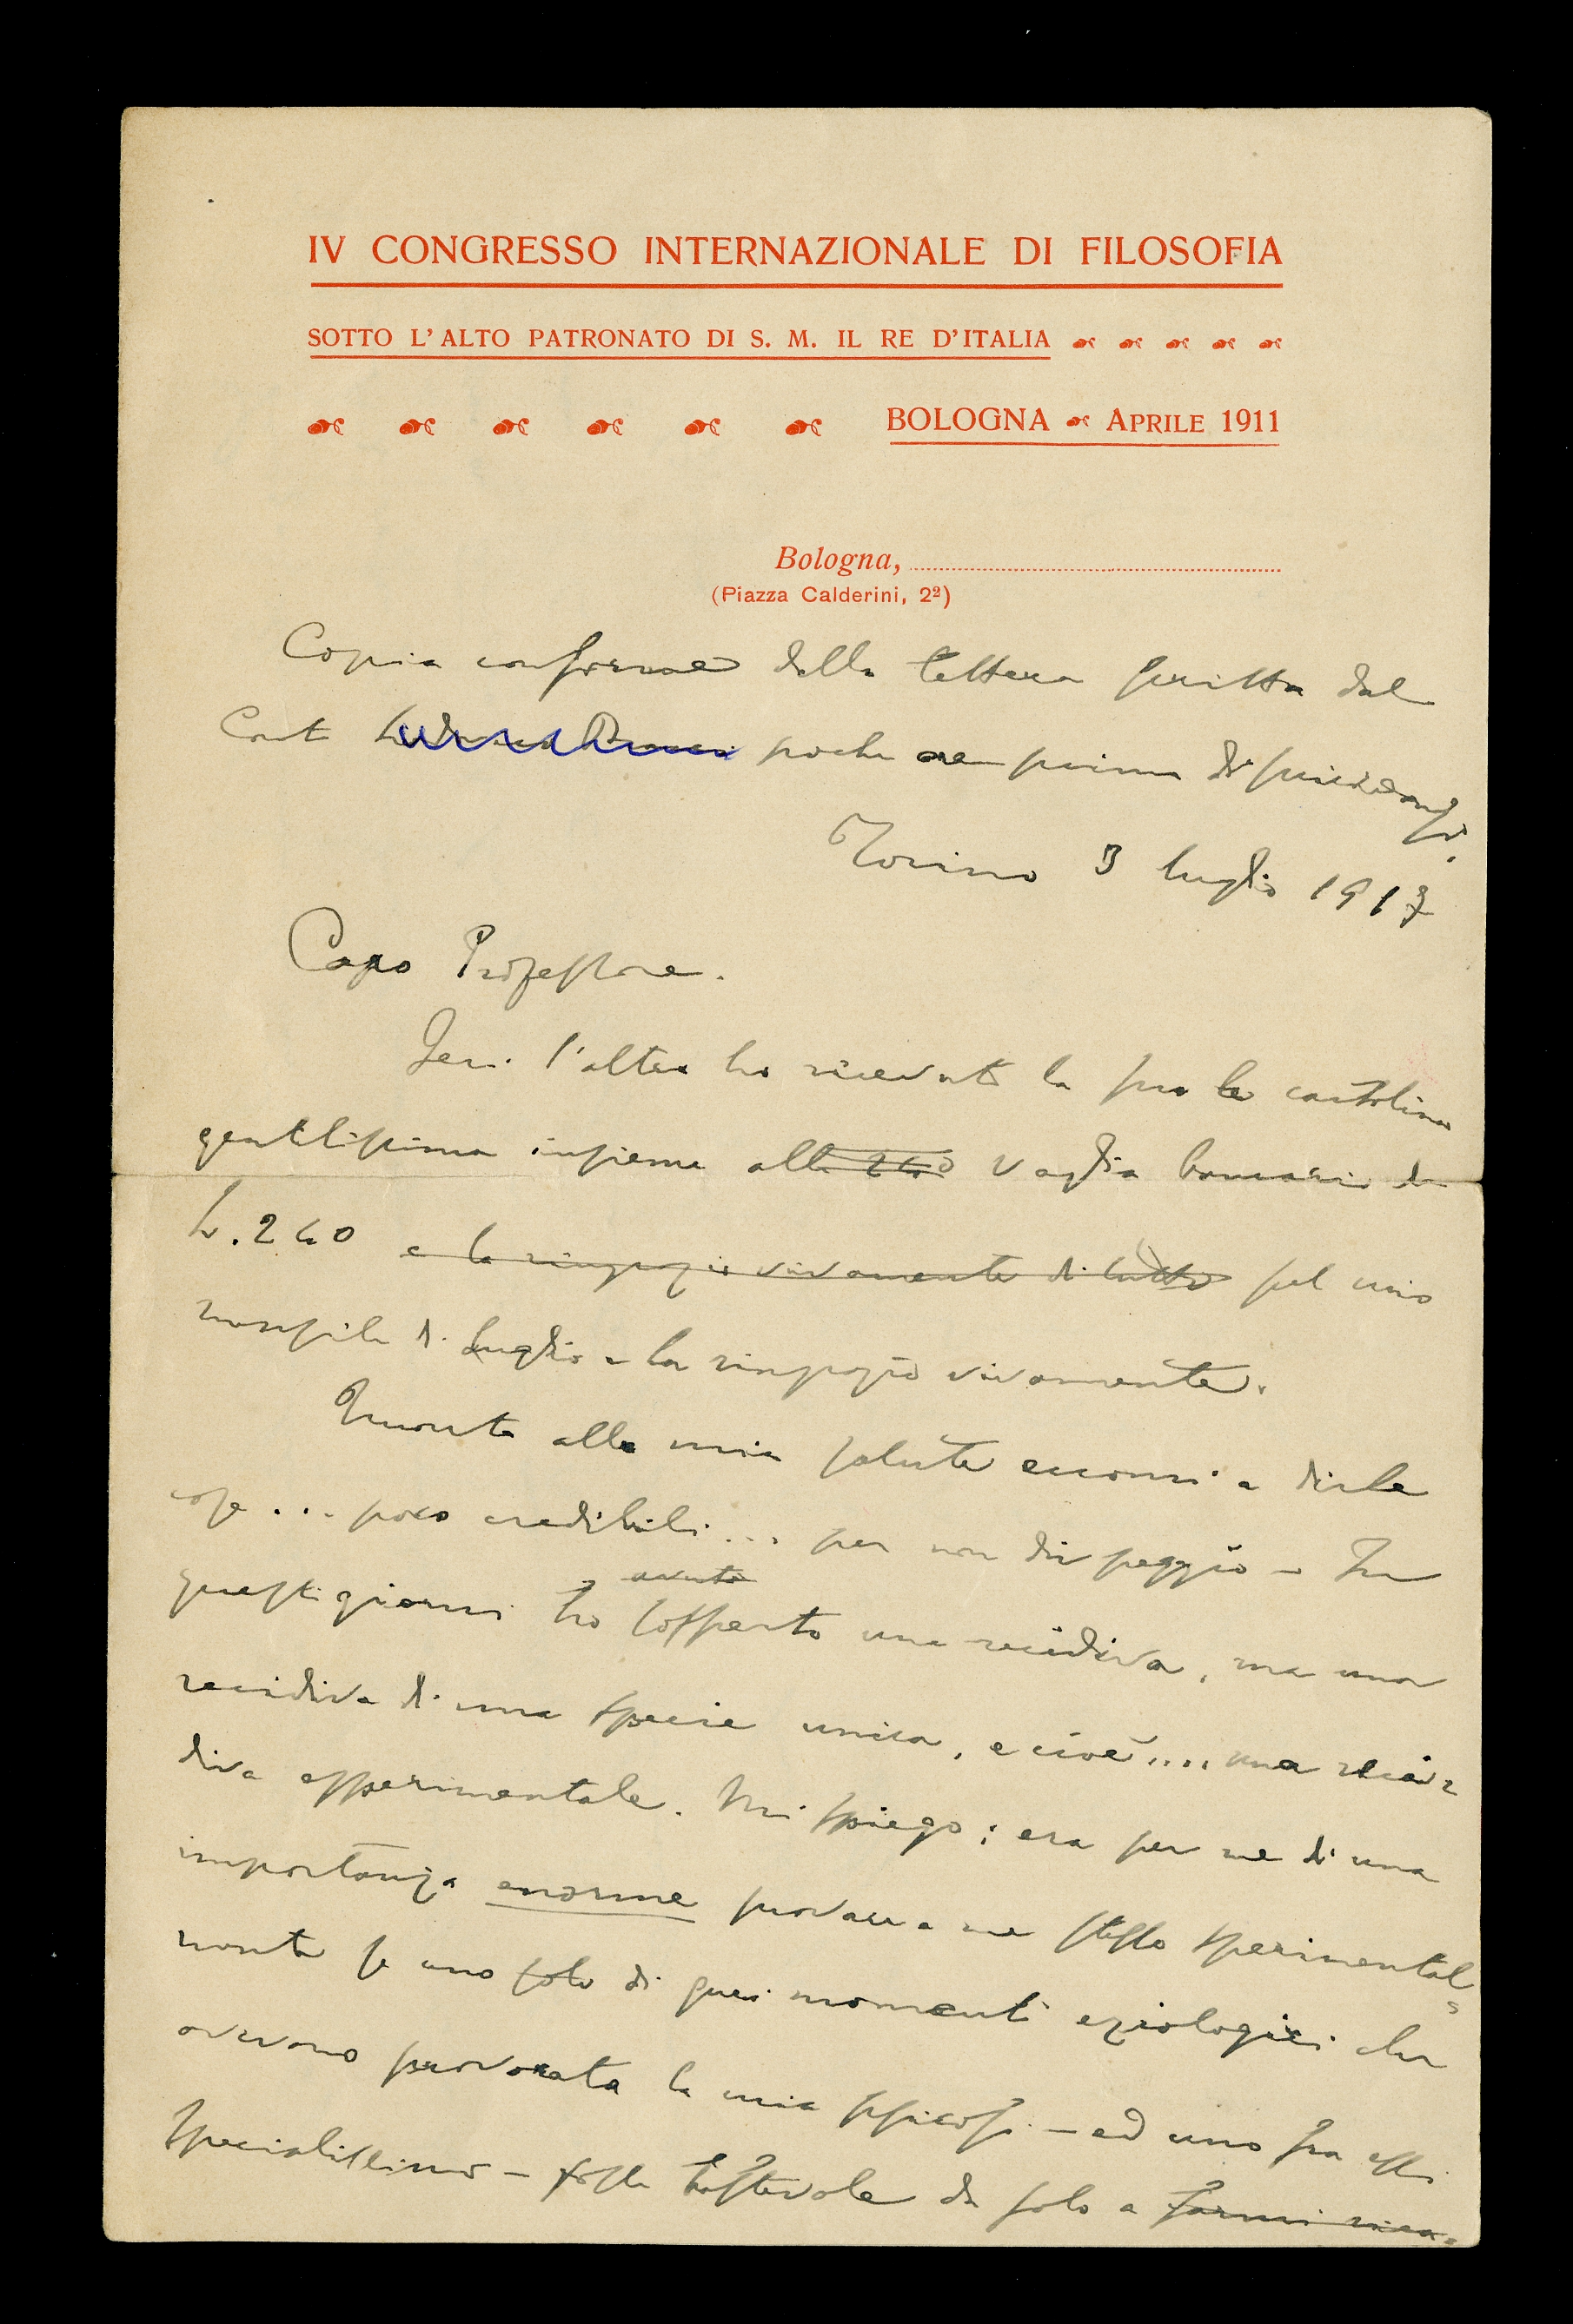 IV CONGRESSO INTERNAZIONALE DI FILOSOFIA
SOTTO L'ALTO PATRONATO DI S. M. IL RE D'ITALIA
BOLOGNA APRILE 1911
Bologna,
(Piazza Calderini, 2²)
Copia conforme della lettera scritta dal
Conte poche ore prima di suicidarsi.
Torino 3 luglio 1913
Caro Professore.
Jeri l'altro ho ricevuto la sua cartolina
gentilissima insieme alle 240 vaglia bancario di
L. 240 e la ringrazio vivamente di tutto sul mio
mensile di luglio e la ringrazio vivamente.
Quanto alla mia salute eccomi a dirle
cose ... poco credibili ... per non dir peggio - In
avuto
questi giorni ho sofferto una recidiva, ma una
recidiva di una specie unica, e cioè .... una reci=
diva esperimentale. Mi spiego: era per me di una
importanza enorme provare a me stesso sperimental=
mente se uno solo di quei momenti eziologici che
avevano provocata la mia psicosi - ed uno fra essi
specialissimo - fosse bastevole da solo a farmi rica=